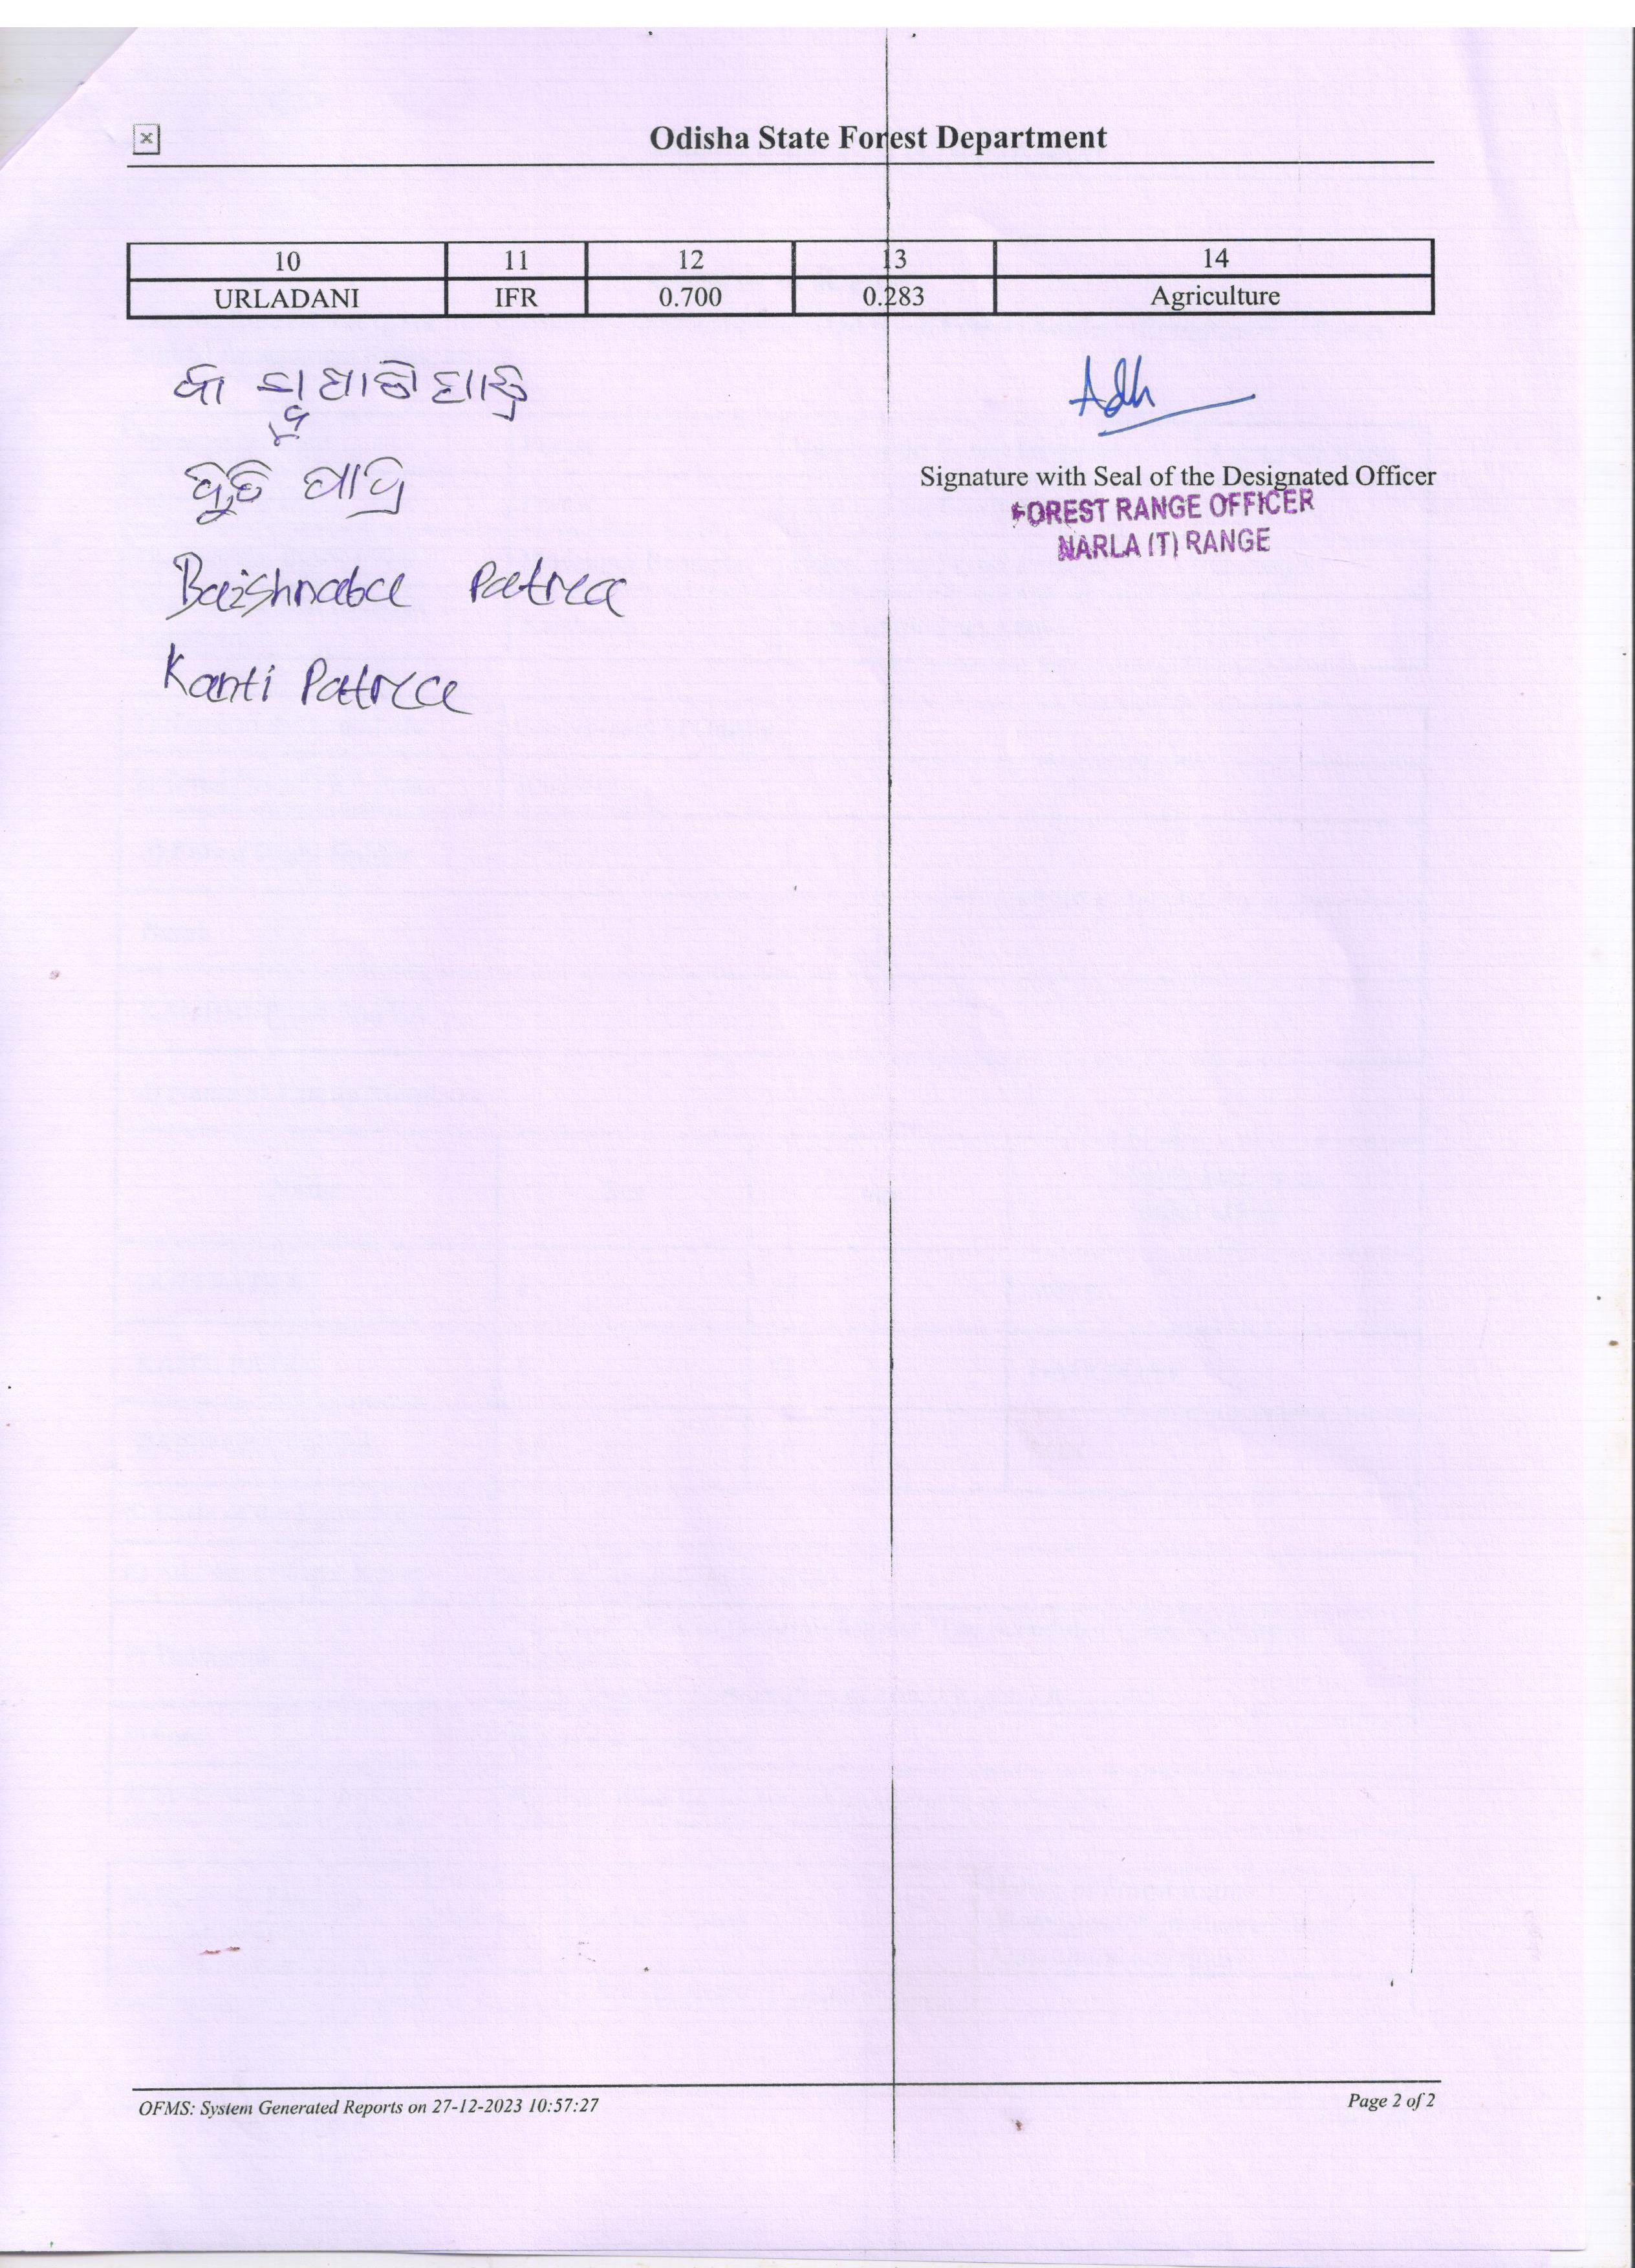 Odisha State Forest Department
10 11 12 13 14
URLADANI IFR 0.700 0.283 Agriculture
Adh
Signature with Seal of the Designated Officer
FOREST RANGE OFFICER
NARLA (T) RANGE
ପାତ୍ର
Baishnaba Patra
Kanti Patra
OFMS: System Generated Reports on 27-12-2023 10:57:27
Page 2 of 2